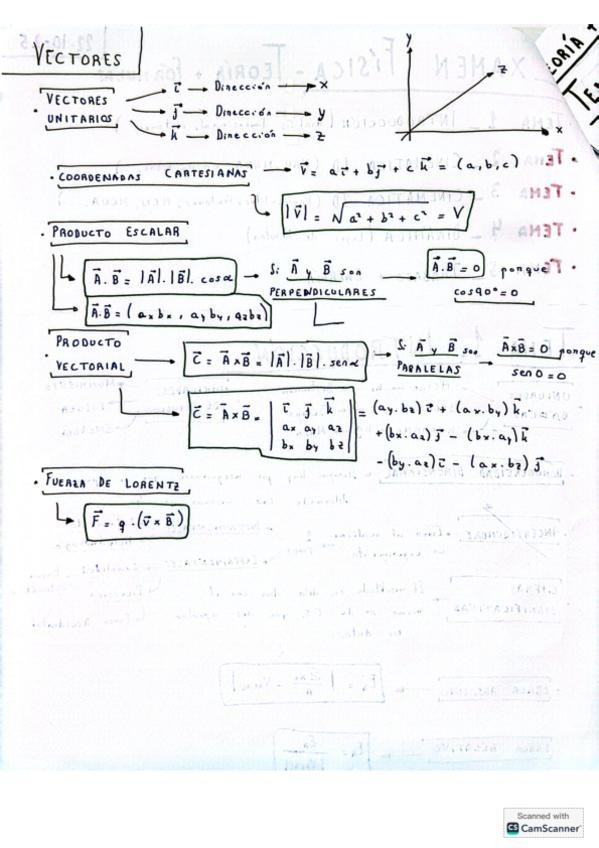 VECTORES
· VECTORES UNITARIOS
i⃗ → Dirección → x
j⃗ → Dirección → y
k⃗ → Dirección → z
y
z
x
· COORDENADAS CARTESIANAS → V⃗ = a i⃗ + b j⃗ + c k⃗ = (a, b, c)
|V⃗| = √a² + b² + c² = V
· PRODUCTO ESCALAR
A⃗ . B⃗ = |A⃗| . |B⃗| . cos α → Si A⃗ y B⃗ son PERPENDICULARES → A⃗ . B⃗ = 0 porque cos 90° = 0
A⃗ . B⃗ = ( axbx , ay by , az bz )
· PRODUCTO VECTORIAL → C⃗ = A⃗ x B⃗ = |A⃗| . |B⃗| . sen α → Si A⃗ y B⃗ son PARALELAS → A⃗ x B⃗ = 0 porque sen 0 = 0
C⃗ = A⃗ x B⃗ = | i⃗ j⃗ k⃗ | = (ay . bz) i⃗ + (ax . by) k⃗
ax ay az + (bx . az) j⃗ – (bx . ay) k⃗
bx by bz – (by . az) i⃗ – (ax . bz) j⃗
· FUERZA DE LORENTZ
F⃗ = q · (v⃗ x B⃗)
Scanned with
CS CamScanner